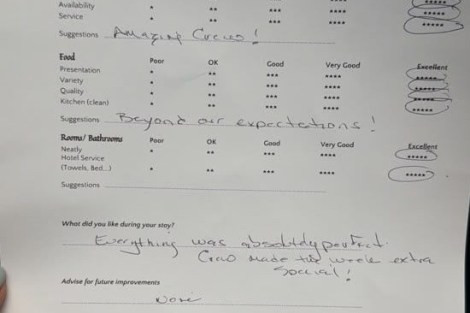 Availability * ** *** **** *****
Service * ** *** **** *****
Suggestions Amazing Crew!
Food Poor OK Good Very Good Excellent
Presentation * ** *** **** *****
Variety * ** *** **** *****
Quality * ** *** **** *****
Kitchen (clean) * ** *** **** *****
Suggestions Beyond our expectations!
Rooms/ Bathrooms Poor OK Good Very Good Excellent
Neatly * ** *** **** *****
Hotel Service
(Towels, Bed...) * ** *** **** *****
Suggestions
What did you like during your stay?
Everything was absolutely perfect.
Crew made the week extra
special!
Advise for future improvements
None